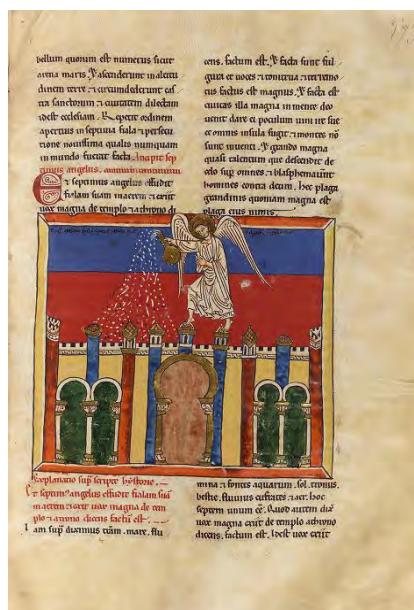 bellum quorum est numerus sicut
arena maris. Et ascenderunt in altitu
dinem terre et circumdederunt cas
tra sanctorum et civitatem dilectam
idest ecclesiam. Repetit ordinem
apertius in septima fiala et persecu
tione novissima qualis numquam
in mundo fuerat facta. Incipit sep
timus angelus.
Et septimus angelus effudit
fialam suam in aerem et exiit
vox magna de templo a throno di
cens. factum est. Et facta sunt ful
gura et voces et tonitrua et terremo
tus factus est magnus. Et facta est
civitas illa magna in mente do
venit dare ei poculum vini ire sue
et omnis insula fugit et montes non
sunt inventi. Et grando magna
quasi talentum que descendit de
celo super omnes et blasphemaverunt
homines contra deum. Hec plaga
grandinis quoniam magna est
plaga eius nimis.
Explanatio supra scripte hystorie.
Et septimus angelus effudit fialam suam
in aerem et exiit vox magna de tem
plo a throno dicens factum est.
Iam supra diximus terram. mare. flu
mina et fontes aquarum. sol. tronus.
bestie. fluvius eufrates et aer. hoc
septem unum est. Quod autem dixit
vox magna exiit de templo a throno
dicens. factum est. hoc est vox exiit